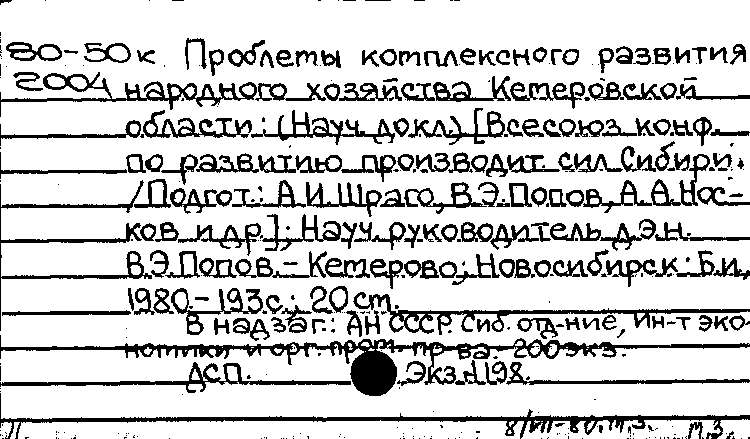 80-50к Проблемы комплексного развития
2004 народного хозяйства Кемеровской
области: (Науч. докл.) [Всесоюз. конф.
по развитию производит. сил Сибири.
/Подгот.: А.И.Шраго, В.Э.Попов, А.А.Нос-
ков и др.]; Науч. руководитель д.э.н.
В.Э.Попов.- Кемерово; Новосибирск: Б.и.,
1980.- 193с.; 20 см.
В надзаг.: АН СССР. Сиб. отд-ние, Ин-т эко-
номики и орг. пром. пр-ва. 200экз.
ДСП. Экз.№198.
8/VII-80. м.з. м.з.